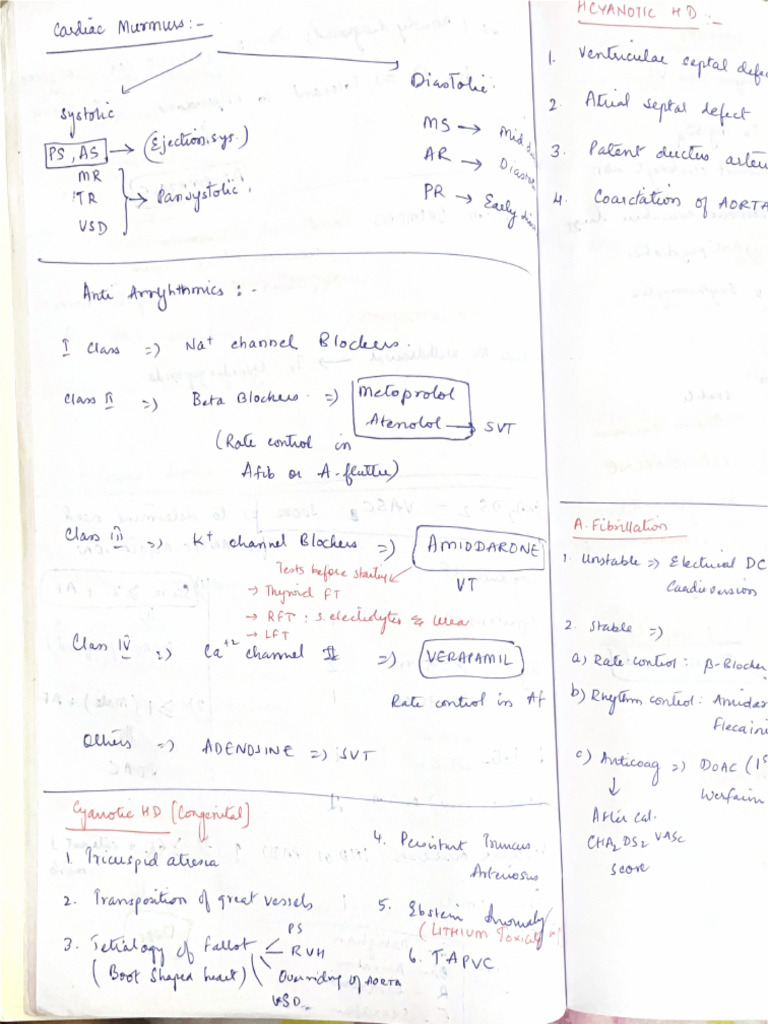 Cardiac Murmurs :-
Systolic
PS, AS → (Ejection.sys)
MR
TR
VSD
→ Pansystolic.
Diastolic.
MS → Mid
AR → Diasto
PR → Early
Anti Arryhthmics :-
I Class => Na+ channel Blockers.
Class II => Beta Blockers. => Metoprolol
Atenolol → SVT
(Rate control in
Afib or A-flutter)
Class III => K+ channel Blockers => AMIODARONE
VT
Tests before starting
→ Thyroid FT
→ RFT : S. electrolytes & Urea
→ LFT
Class IV => Ca+2 channel => VERAPAMIL
Rate control in Af
Others => ADENOSINE => SVT
Cyanotic HD [Congenital]
1. Tricuspid atresia
2. Transposition of great vessels
3. Tetralogy of fallot
(Boot shaped heart)
PS
RVH
Overriding of AORTA
VSD
4. Persistent Truncus
Arteriosus
5. Ebstein Anomaly
(LITHIUM Toxicity
6. TAPVC
ACYANOTIC HD :-
1. Ventricular septal defec
2. Atrial septal defect
3. Patent ductus arter
4. Coarctation of AORTA
A. Fibrillation
1. Unstable => Electrical DC
Cardioversion
2. Stable =>
a) Rate control : β-Blocker
b) Rhythm control : Amidar
Flecaini
c) Anticoag => DOAC (1s
Warfarin
↓
After cal.
CHA2DS2 VASC
score